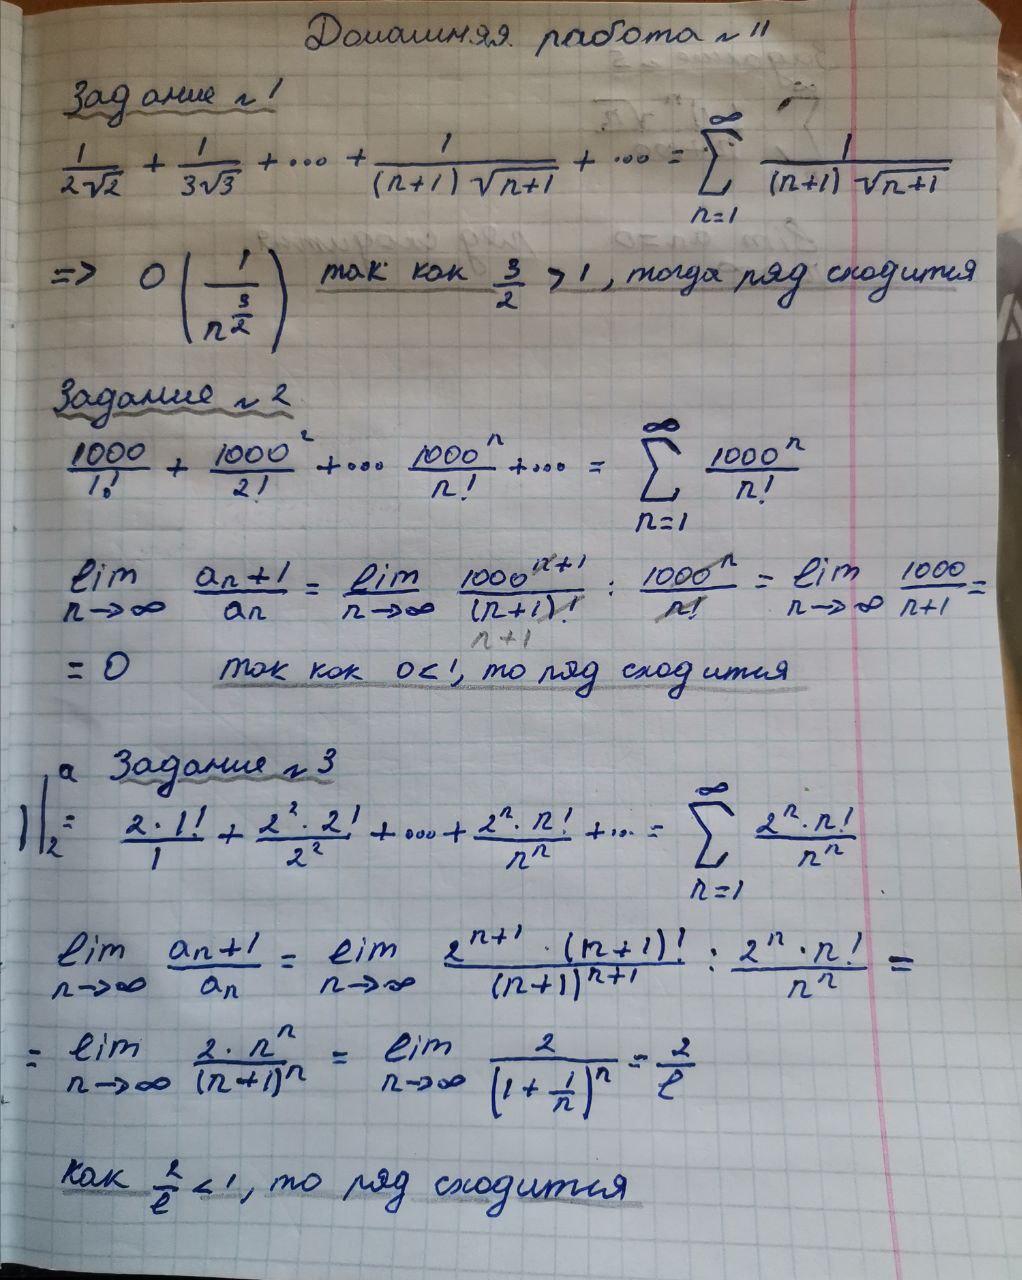 Домашняя работа №11
Задание №1
1/(2√2) + 1/(3√3) + ... + 1/((n+1)√(n+1)) + ... = ∑_{n=1}^{∞} 1/((n+1)√(n+1))
=> O(1/n^{3/2}) так как 3/2 > 1, тогда ряд сходится
Задание №2
1000/1! + 1000²/2! + ... 1000ⁿ/n! + ... = ∑_{n=1}^{∞} 1000ⁿ/n!
lim_{n→∞} aₙ+1/aₙ = lim_{n→∞} 1000^{n+1}/(n+1)! : 1000ⁿ/n! = lim_{n→∞} 1000/(n+1) =
n+1
= 0 так как 0<1, то ряд сходится
Задание №3
(2·1!)/1 + (2²·2!)/2² + ... + (2ⁿ·n!)/nⁿ + ... = ∑_{n=1}^{∞} (2ⁿ·n!)/nⁿ
lim_{n→∞} aₙ+1/aₙ = lim_{n→∞} (2^{n+1}·(n+1)!)/(n+1)^{n+1} : (2ⁿ·n!)/nⁿ =
= lim_{n→∞} (2·nⁿ)/(n+1)ⁿ = lim_{n→∞} 2/(1+1/n)ⁿ = 2/e
как 2/e < 1, то ряд сходится